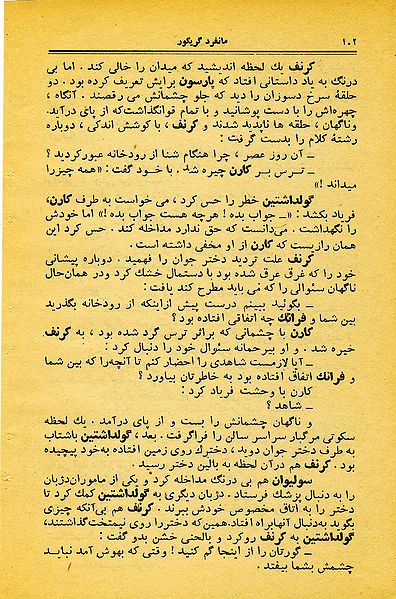 ۱۰۲ مانفرد گریگور
کرنف یك لحظه اندیشید که میدان را خالی کند . اما بی
درنگ به یاد داستانی افتاد که پارسون برایش تعریف کرده بود . دو
حلقهٔ سرخ دسوزان را دید که جلو چشمانش می رقصند . آنگاه ،
چهره‌اش را با دست پوشانید و با تمام قوانگذاشت‌که از پای درآید.
وناگهان ، حلقه ها ناپدید شدند و کرنف ، با کوشش اندکی ، دوباره
رشتهٔ کلام را بدست گرفت :
ــ آن روز عصر ، چرا هنگام شنا از رودخانه عبورکردید ؟
ــ ترس بر کارن چیره شد . با خود گفت : «همه چیزرا
میداند !»
گولداشتین خطر را حس کرد ، می خواست به طرف کارن،
فریاد بکشد : «ــ جواب بده ! هرچه هست جواب بده !» اما خودش
را نگهداشت . می‌دانست که حق ندارد مداخله کند . حس کرد این
همان رازیست که کارن از او مخفی داشته است .
کرنف علت تردید دختر جوان را فهمید . دوباره پیشانی
خود را که غرق عرق شده بود با دستمال خشك کرد ودر همان‌حال
ناگهان سئوالی را که می باید مطرح کند یافت :
ــ بگوئید ببینم درست پیش ازاینکه از رودخانه بگذرید
بین شما و فرانك چه اتفاقی افتاده بود ؟
کارن با چشمانی که براثر ترس گرد شده بود ، به کرنف
خیره شد . و او بیرحمانه سئوال خود را دنبال کرد :
ــ آیا لازمست شاهدی را احضار کنم تا آنچه‌را که بین شما
و فرانك اتفاقی افتاده بود به خاطرتان بیاورد ؟
کارن با وحشت فریاد کرد :
ــ شاهد ؟
و ناگهان چشمانش را بست و از پای درآمد . یك لحظه
سکوتی مرگبار سراسر سالن را فراگرفت . بعد ، گولداشتین باشتاب
به طرف دختر جوان دوید ، دخترك روی زمین افتاده به‌خود پیچیده
بود . کرنف هم درآن لحظه به بالین دختر رسید .
سولیوان هم بی درنگ مداخله کرد و یکی از ماموران‌دژبان
را به دنبال پزشك فرستاد . دژبان دیگری به گولداشتین کمك کرد تا
دختر را به اتاق مخصوص خودش ببرند . کرنف هم بی‌آنکه چیزی
بگوید به‌دنبال آنهابراه افتاد.همین‌که دختررا روی نیمتخت‌گذاشتند،
گولداشتین به کرنف روکرد و بالحنی خشن بدو گفت :
ــ گورتان را از اینجا گم کنید ! وقتی که بهوش آمد نباید
چشمش بشما بیفتد .